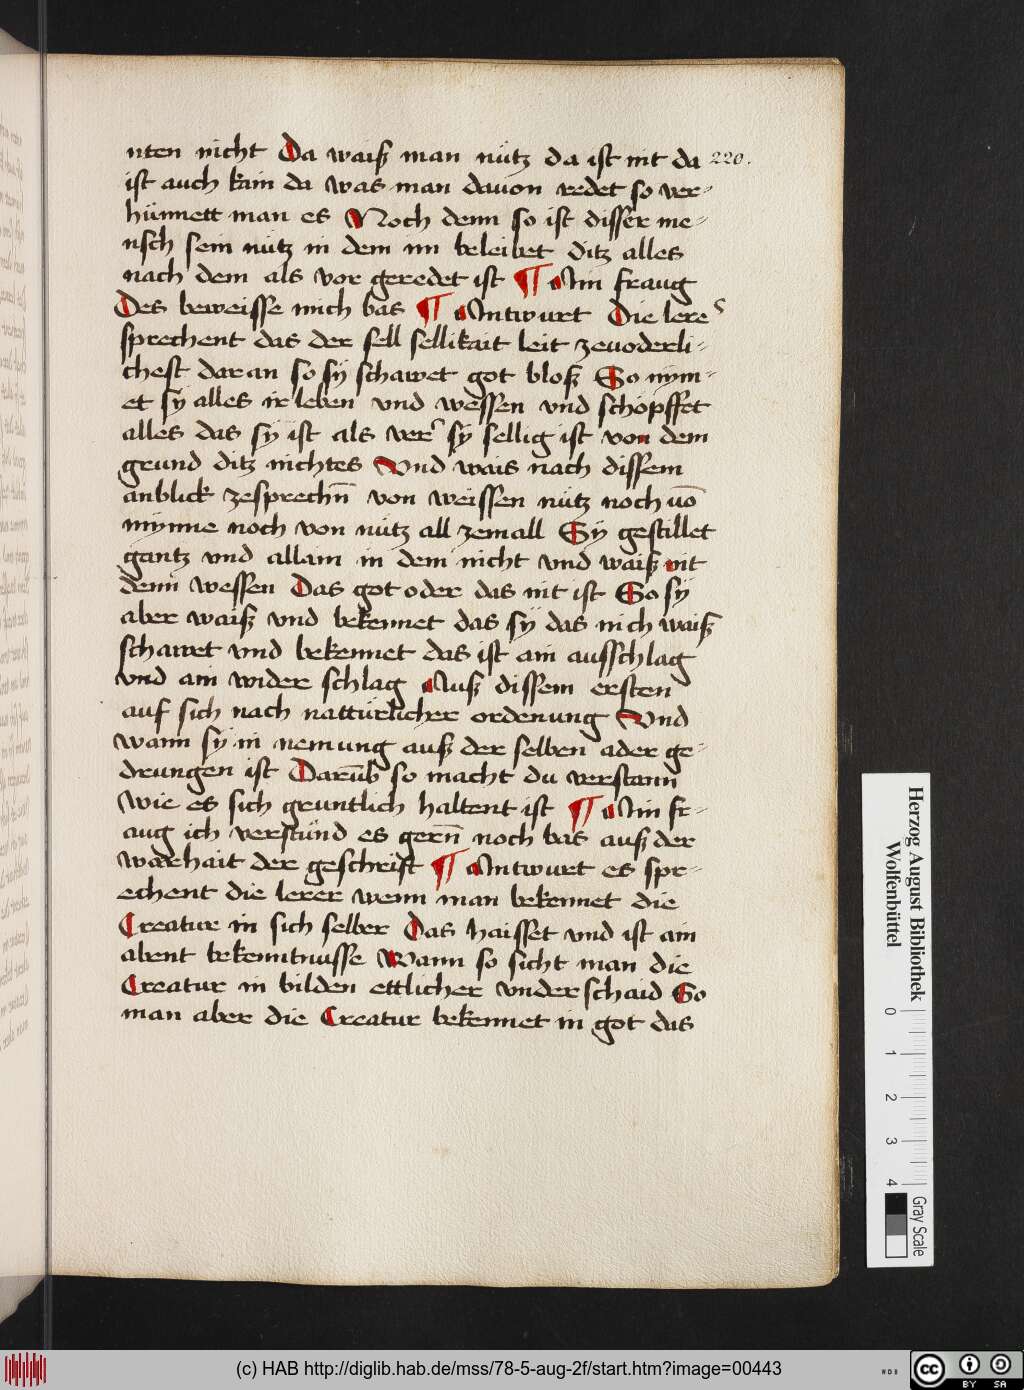 nten nicht Da waiß man nütz da ist nit da 220.
ist auch kain da was man dauon redet so ver-
hünnett man es Noch denn so ist disser me-
nsch sein nütz in dem im beleibet ditz alles
nach dem als vor geredet ist ¶ Ain fraug
Des beweisse mich bas ¶ Antwurt Die lere
sprechent das der sell sellikait leit zeuoderli-
chest daran so sÿ schawet got bloß So nÿm-
et sÿ alles ir leben vnd wessen vnd schöpffet
alles das sÿ ist als ver sÿ sellig ist von dem
grund ditz nichtes Vnd wais nach dissem
anblick zesprechn̄ von weissen nütz noch vō
mÿnne noch von nütz all zemall Sÿ gestillet
gantz vnd allain in dem nicht vnd waiß nit
denn wessen Das got oder das nit ist So sÿ
aber waiß vnd bekennet das sÿ das nich waiß
schawet vnd bekennet das ist ain ausschlag
vnd ain wider schlag Auß dissem ersten
auf sich nach nattürlicher ordenung Vnd
wann sÿ in nemung auß der selben ader ge-
drungen ist Darūb so macht du verstann
wie es sich gruntlich haltent ist ¶ Ain fr-
aug ich verstünd es gern̄ noch bas auß der
warhait der geschrift ¶ Antwurt es spr-
echent die lerer wenn man bekennet die
Creature in sich selber Das haisset vnd ist ain
abent bekenntnusse Wann so sicht man die
Creatur in bilden ettlicher vnderschaid So
man aber die Creatur bekennet in got das
Herzog August Bibliothek
Wolfenbüttel
0 1 2 3 4
Gray Scale
(c) HAB http://diglib.hab.de/mss/78-5-aug-2f/start.htm?image=00443
cc BY SA